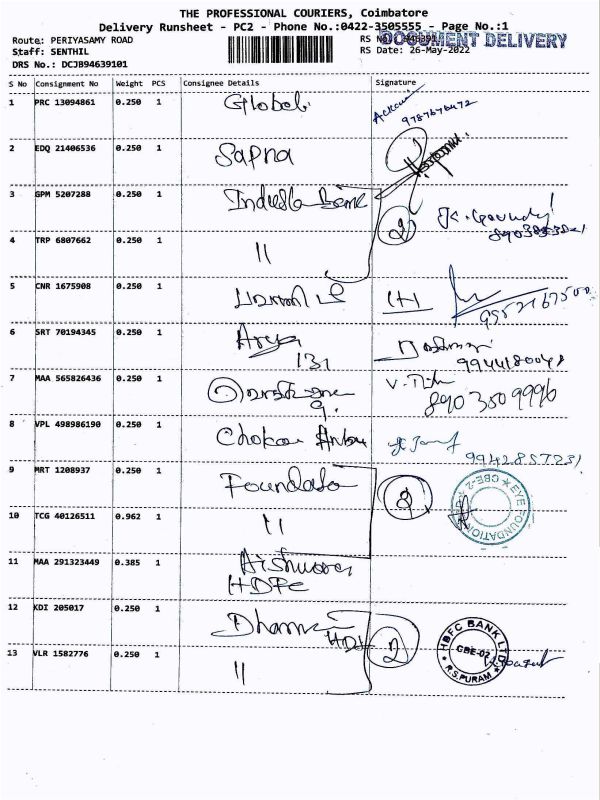 THE PROFESSIONAL COURIERS, Coimbatore
Delivery Runsheet - PC2 - Phone No.:0422-3505555 - Page No.:1
Route: PERIYASAMY ROAD
RS No
DOCUMENT DELIVERY
Staff: SENTHIL
RS Date: 26-May-2022
DRS No.: DCJB94639101
S No Consignment No Weight PCS Consignee Details Signature
1 PRC 13094861 0.250 1 Global
9787676472
2 EDQ 21406536 0.250 1 Sapna
3 GPM 5207288 0.250 1 Bank
2
4 TRP 6807662 0.250 1 11
5 CNR 1675908 0.250 1
9952167500
6 SRT 70194345 0.250 1 Arya
131
9944180048
7 MAA 565826436 0.250 1
8903509996
8 VPL 498986190 0.250 1
9942857231
9 MRT 1208937 0.250 1 Foundato
2
EYE FOUNDATION CBE-2
10 TCG 40126511 0.962 1 11
11 MAA 291323449 0.385 1 Aishwarya
HDFC
12 KDI 205017 0.250 1
2
HDFC BANK LTD
CBE-02
R.S.PURAM
13 VLR 1582776 0.250 1 11